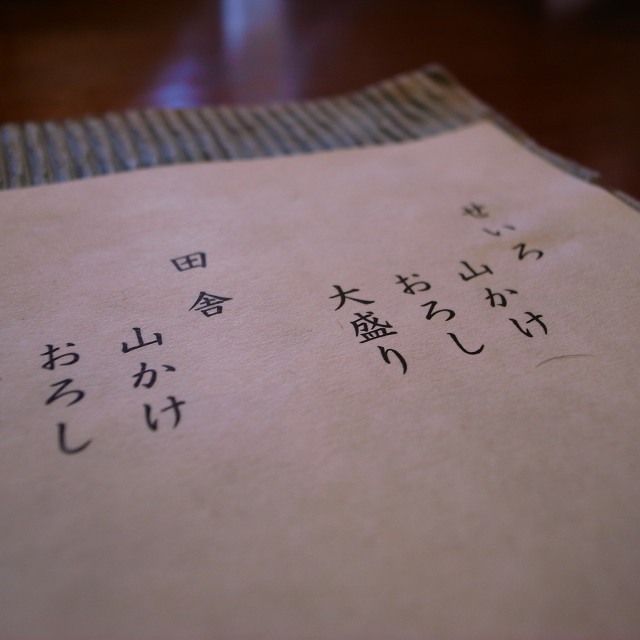 せいろ
山かけ
おろし
大盛り
田舎
山かけ
おろし